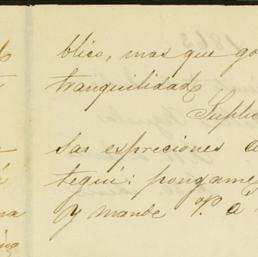 blico, mas que go
tranquilidad.
Suplic
sas expreciones a
tegui: pongame
y mande V. a